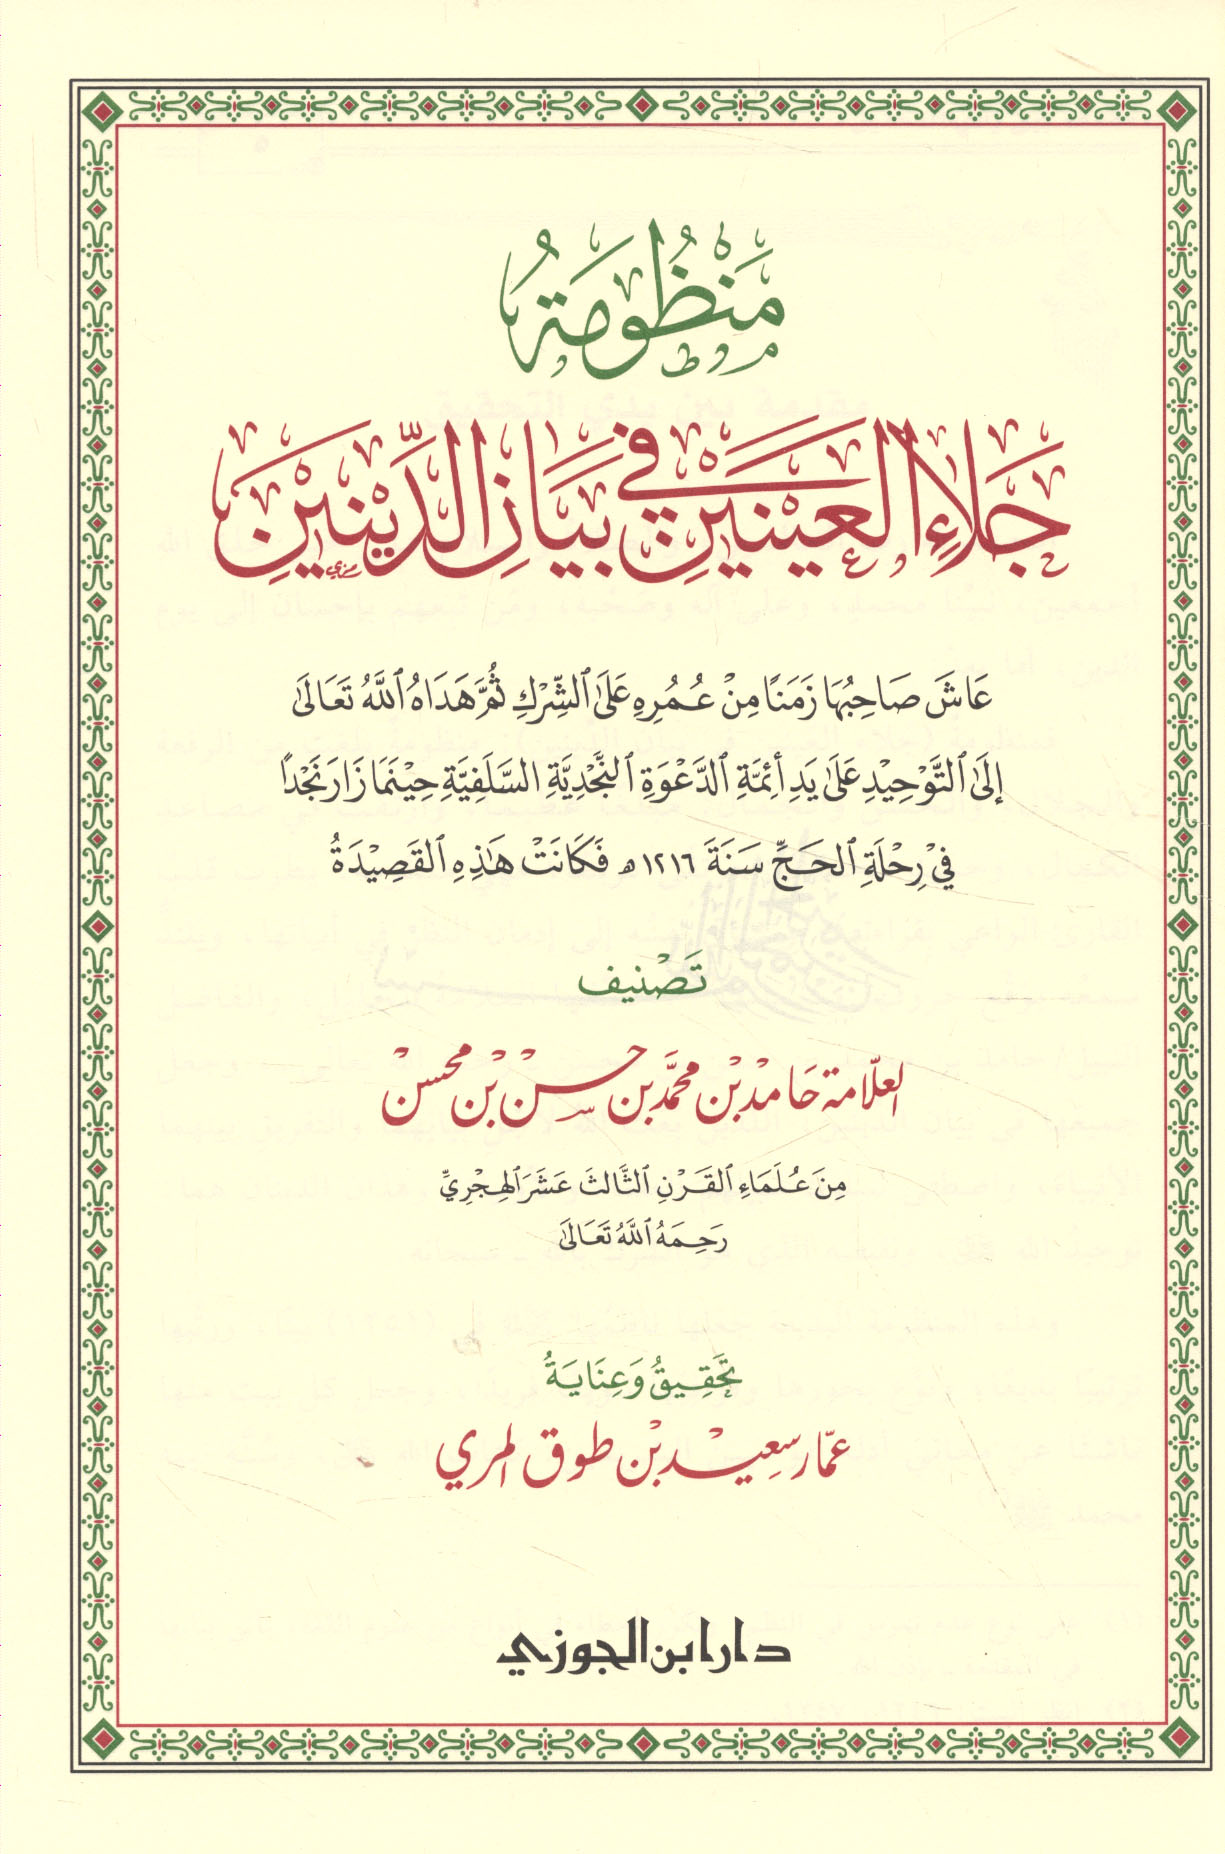 مَنْظُومَةُ
جَلَاءِ الْعَيْنَيْنِ فِي بَيَانِ الدِّينَيْنِ
عَاشَ صَاحِبُهَا زَمَنًا مِنْ عُمُرِهِ عَلَى ٱلشِّرْكِ ثُمَّ هَدَاهُ ٱللَّهُ تَعَالَى
إِلَى ٱلتَّوْحِيْدِ عَلَى يَدِ أَئِمَّةِ ٱلدَّعْوَةِ ٱلنَّجْدِيَّةِ ٱلسَّلَفِيَّةِ حِيْنَمَا زَارَ نَجْدًا
فِيْ رِحْلَةِ ٱلْحَجِّ سَنَةَ ١٢١٦ه فَكَانَتْ هَذِهِ ٱلْقَصِيْدَةُ
تَصْنِيف
العلّامة حَامدْ بْن محمَّد بن حسنْ بْن محسنْ
مِنَ عُلَمَاءِ ٱلْقَرْنِ ٱلثَّالثَ عَشَرَ ٱلْهِجْرِيِّ
رَحِمَهُ ٱللَّهُ تَعَالَى
تَحْقِيقُ وَعِنَايَةُ
عمّار سعِيدْ بْن طوق المري
دار ابن الجوزي